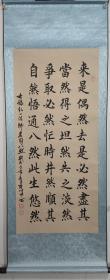 來是偶然去是必然盡其
當然得之坦然失之淡然
爭取必然忙時井然順其
自然悟通八然此生悠然